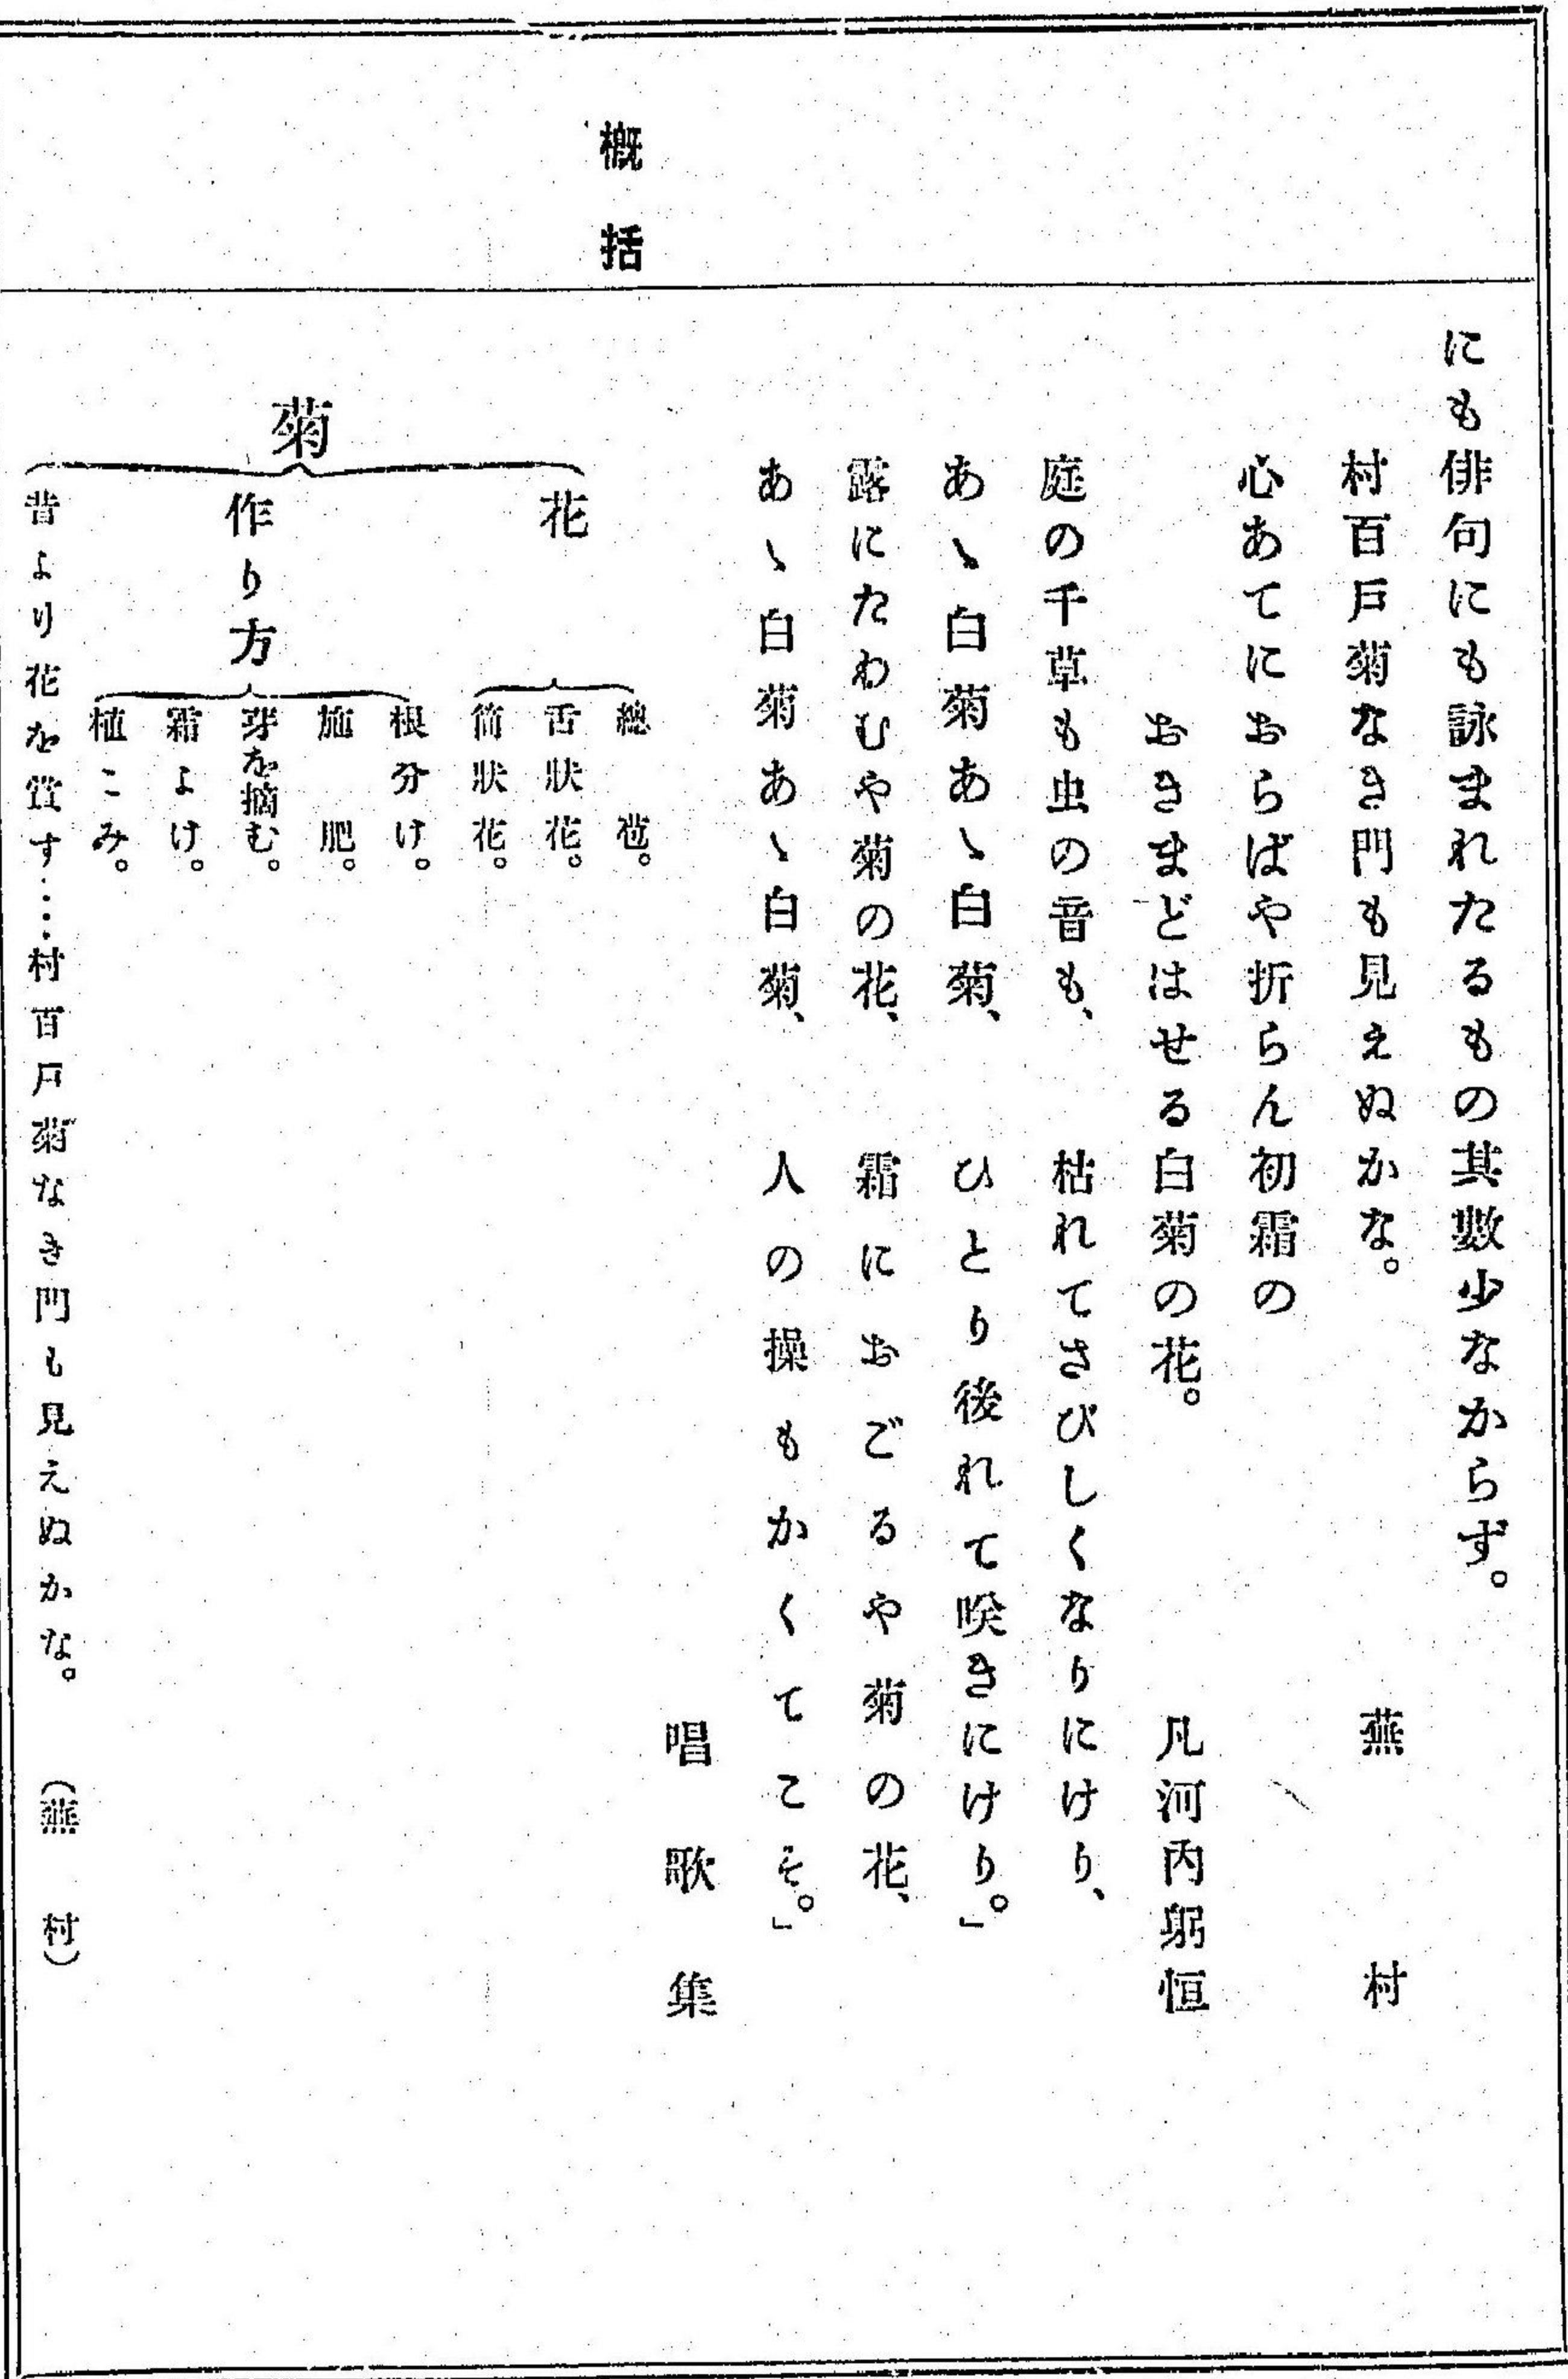 にも俳句にも詠まれたるもの其數少なからず。
村百戸菊なき門も見えぬかな。　蕪村
心あてにおらばや折らん初霜の
おきまどはせる白菊の花。　凡河內躬恒
庭の千草も虫の音も、　枯れてさびしくなりにけり、
あゝ白菊あゝ白菊、　ひとり後れて咲きにけり。」
露にたわむや菊の花、　霜におごるや菊の花、
あゝ白菊あゝ白菊、　人の操もかくてこそ。」
唱歌集
概括
菊
花
總苞。
舌狀花。
筒狀花。
作り方
根分け。
施肥。
芽を摘む。
霜よけ。
植こみ。
昔より花を賞す……村百戸菊なき門も見えぬかな。　（蕪村）